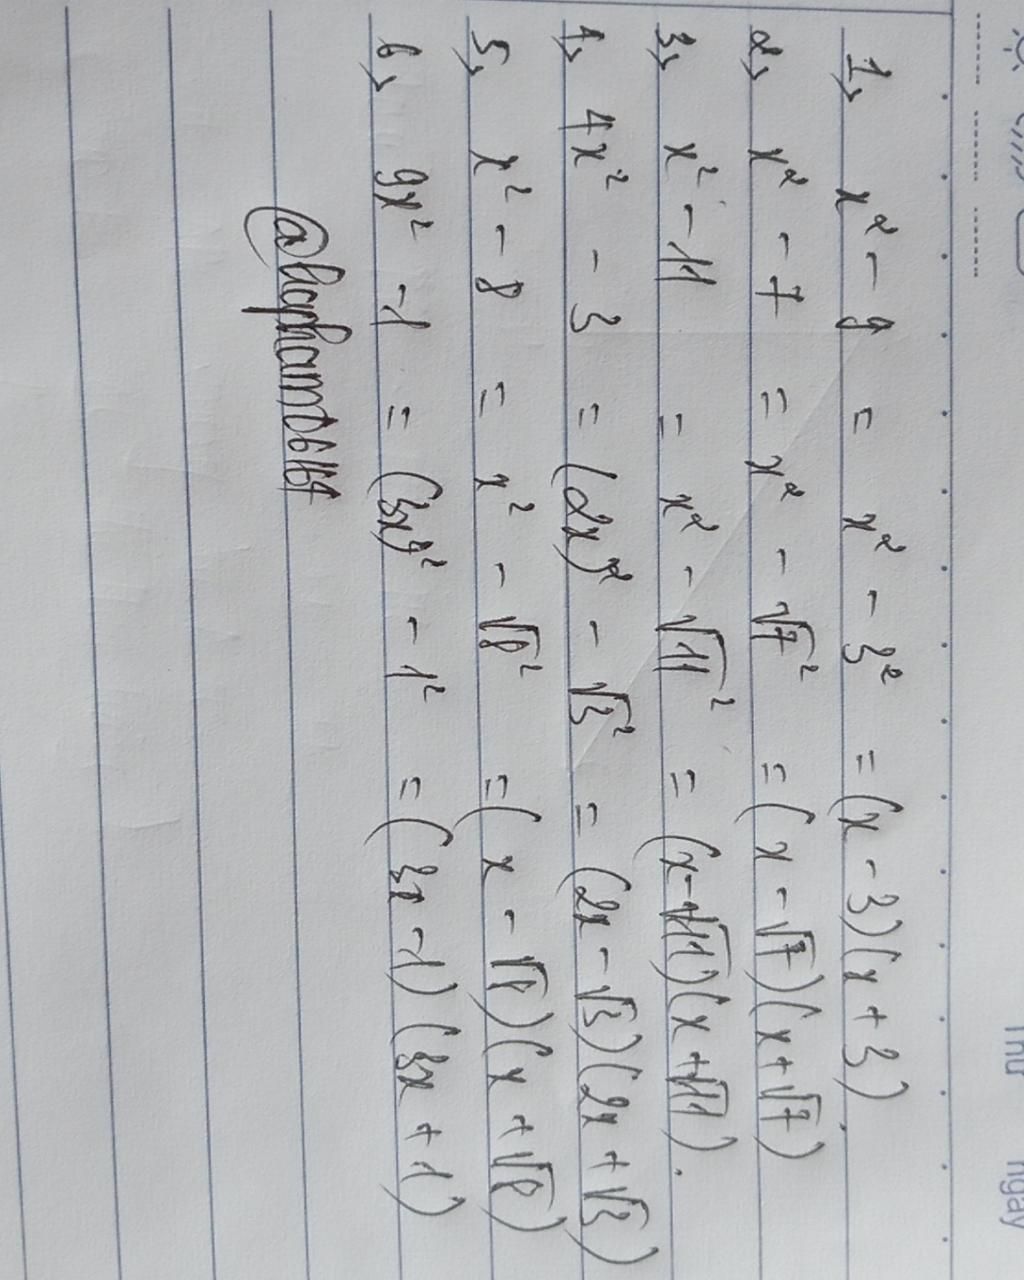 Thứ ngày
1, x² - 9 = x² - 3² = (x - 3)(x + 3)
2, x² - 7 = x² - √7² = (x - √7)(x + √7)
3, x² - 11 = x² - √11² = (x - √11)(x + √11).
4, 4x² - 3 = (2x)² - √3² = (2x - √3)(2x + √3)
5, x² - 8 = x² - √8² = (x - √8)(x + √8)
6, 9x² - 1 = (3x)² - 1² = (3x - 1)(3x + 1)